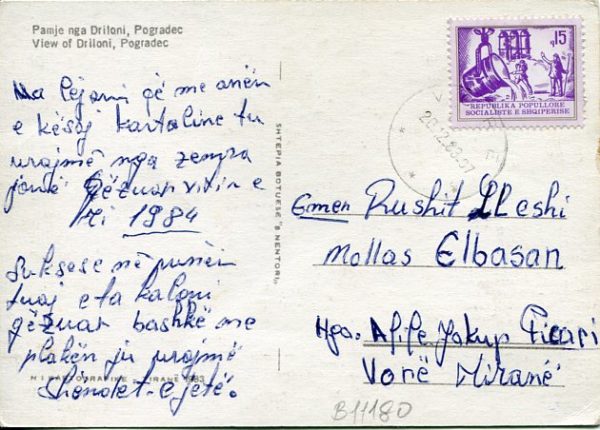 Pamje nga Driloni, Pogradec
View of Driloni, Pogradec
Na lejoni që me anën
e kësaj kartoline tu
urojmë nga zemra
jonë Gëzuar vitin e
ri 1984
Suksese në punën
tuaj e ta kaloni
gëzuar bashkë me
plakën ju urojmë
shëndet-e jetë.
SHTEPIA BOTUESE "8 NENTORI"
15 q
REPUBLIKA POPULLORE
SOCIALISTE E SHQIPERISE
Rushit Lleshi
Mollas Elbasan
Nga. Afife, Jakup
Vorë Tiranë
B11180